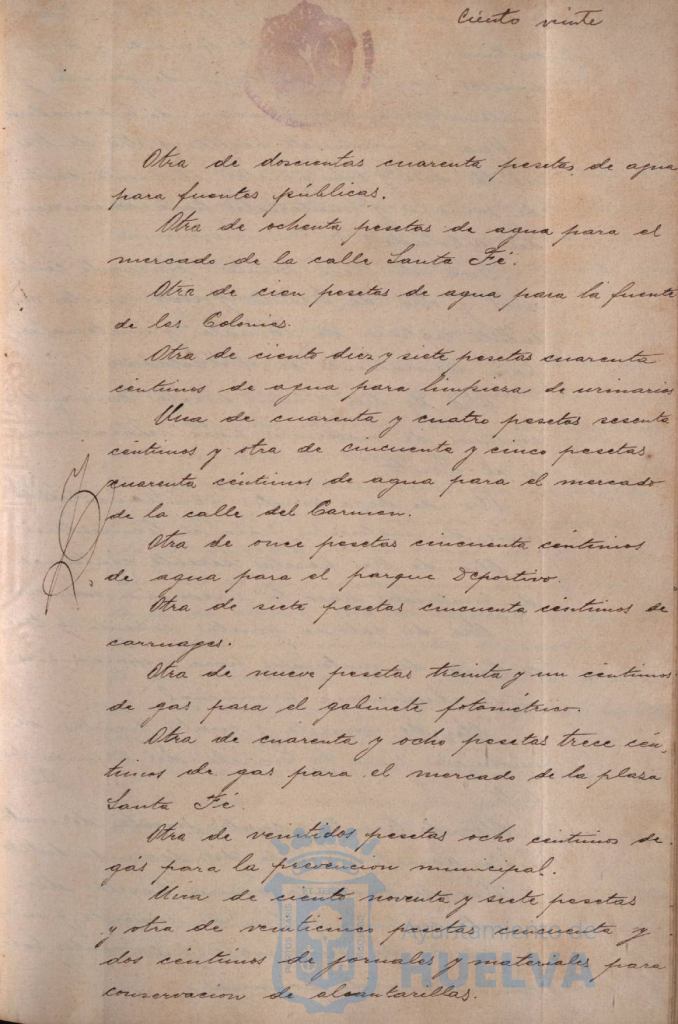 Ciento veinte
Otra de doscientas cuarenta pesetas de agua
para fuentes públicas.
Otra de ochenta pesetas de agua para el
mercado de la calle Santa Fé.
Otra de cien pesetas de agua para la fuente
de las Colonias.
Otra de ciento diez y siete pesetas cuarenta
céntimos de agua para limpieza de urinarios
Una de cuarenta y cuatro pesetas sesenta
céntimos y otra de cincuenta y cinco pesetas
cuarenta céntimos de agua para el mercado
de la calle del Carmen.
Otra de once pesetas cincuenta céntimos
de agua para el parque Deportivo.
Otra de siete pesetas cincuenta céntimos de
carruages.
Otra de nueve pesetas treinta y un céntimos
de gas para el gabinete fotométrico.
Otra de cuarenta y ocho pesetas trece cén-
timos de gas para el mercado de la plaza
Santa Fé.
Otra de veintidos pesetas ocho centimos de
gas para la prevencion municipal.
Una de ciento noventa y siete pesetas
y otra de veinticinco pesetas cincuenta y
dos céntimos de jornales y materiales para
conservacion de alcantarillas.
Ayuntamiento de
HUELVA